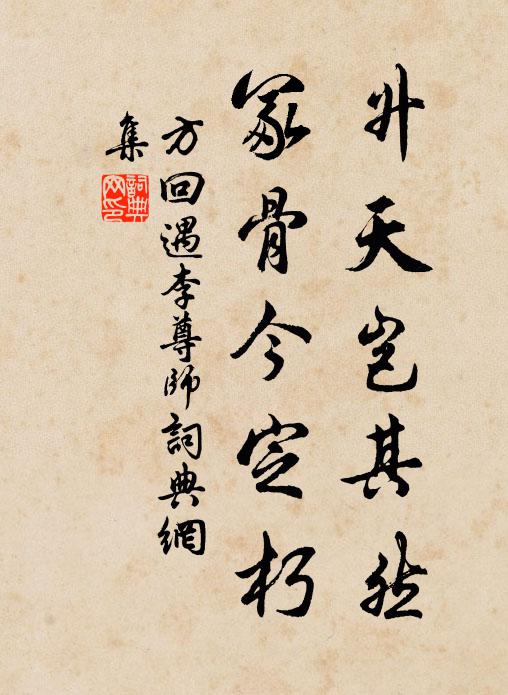 升天岂其然
冢骨今定朽
方回遇李尊師詞典網
集
詞典网印